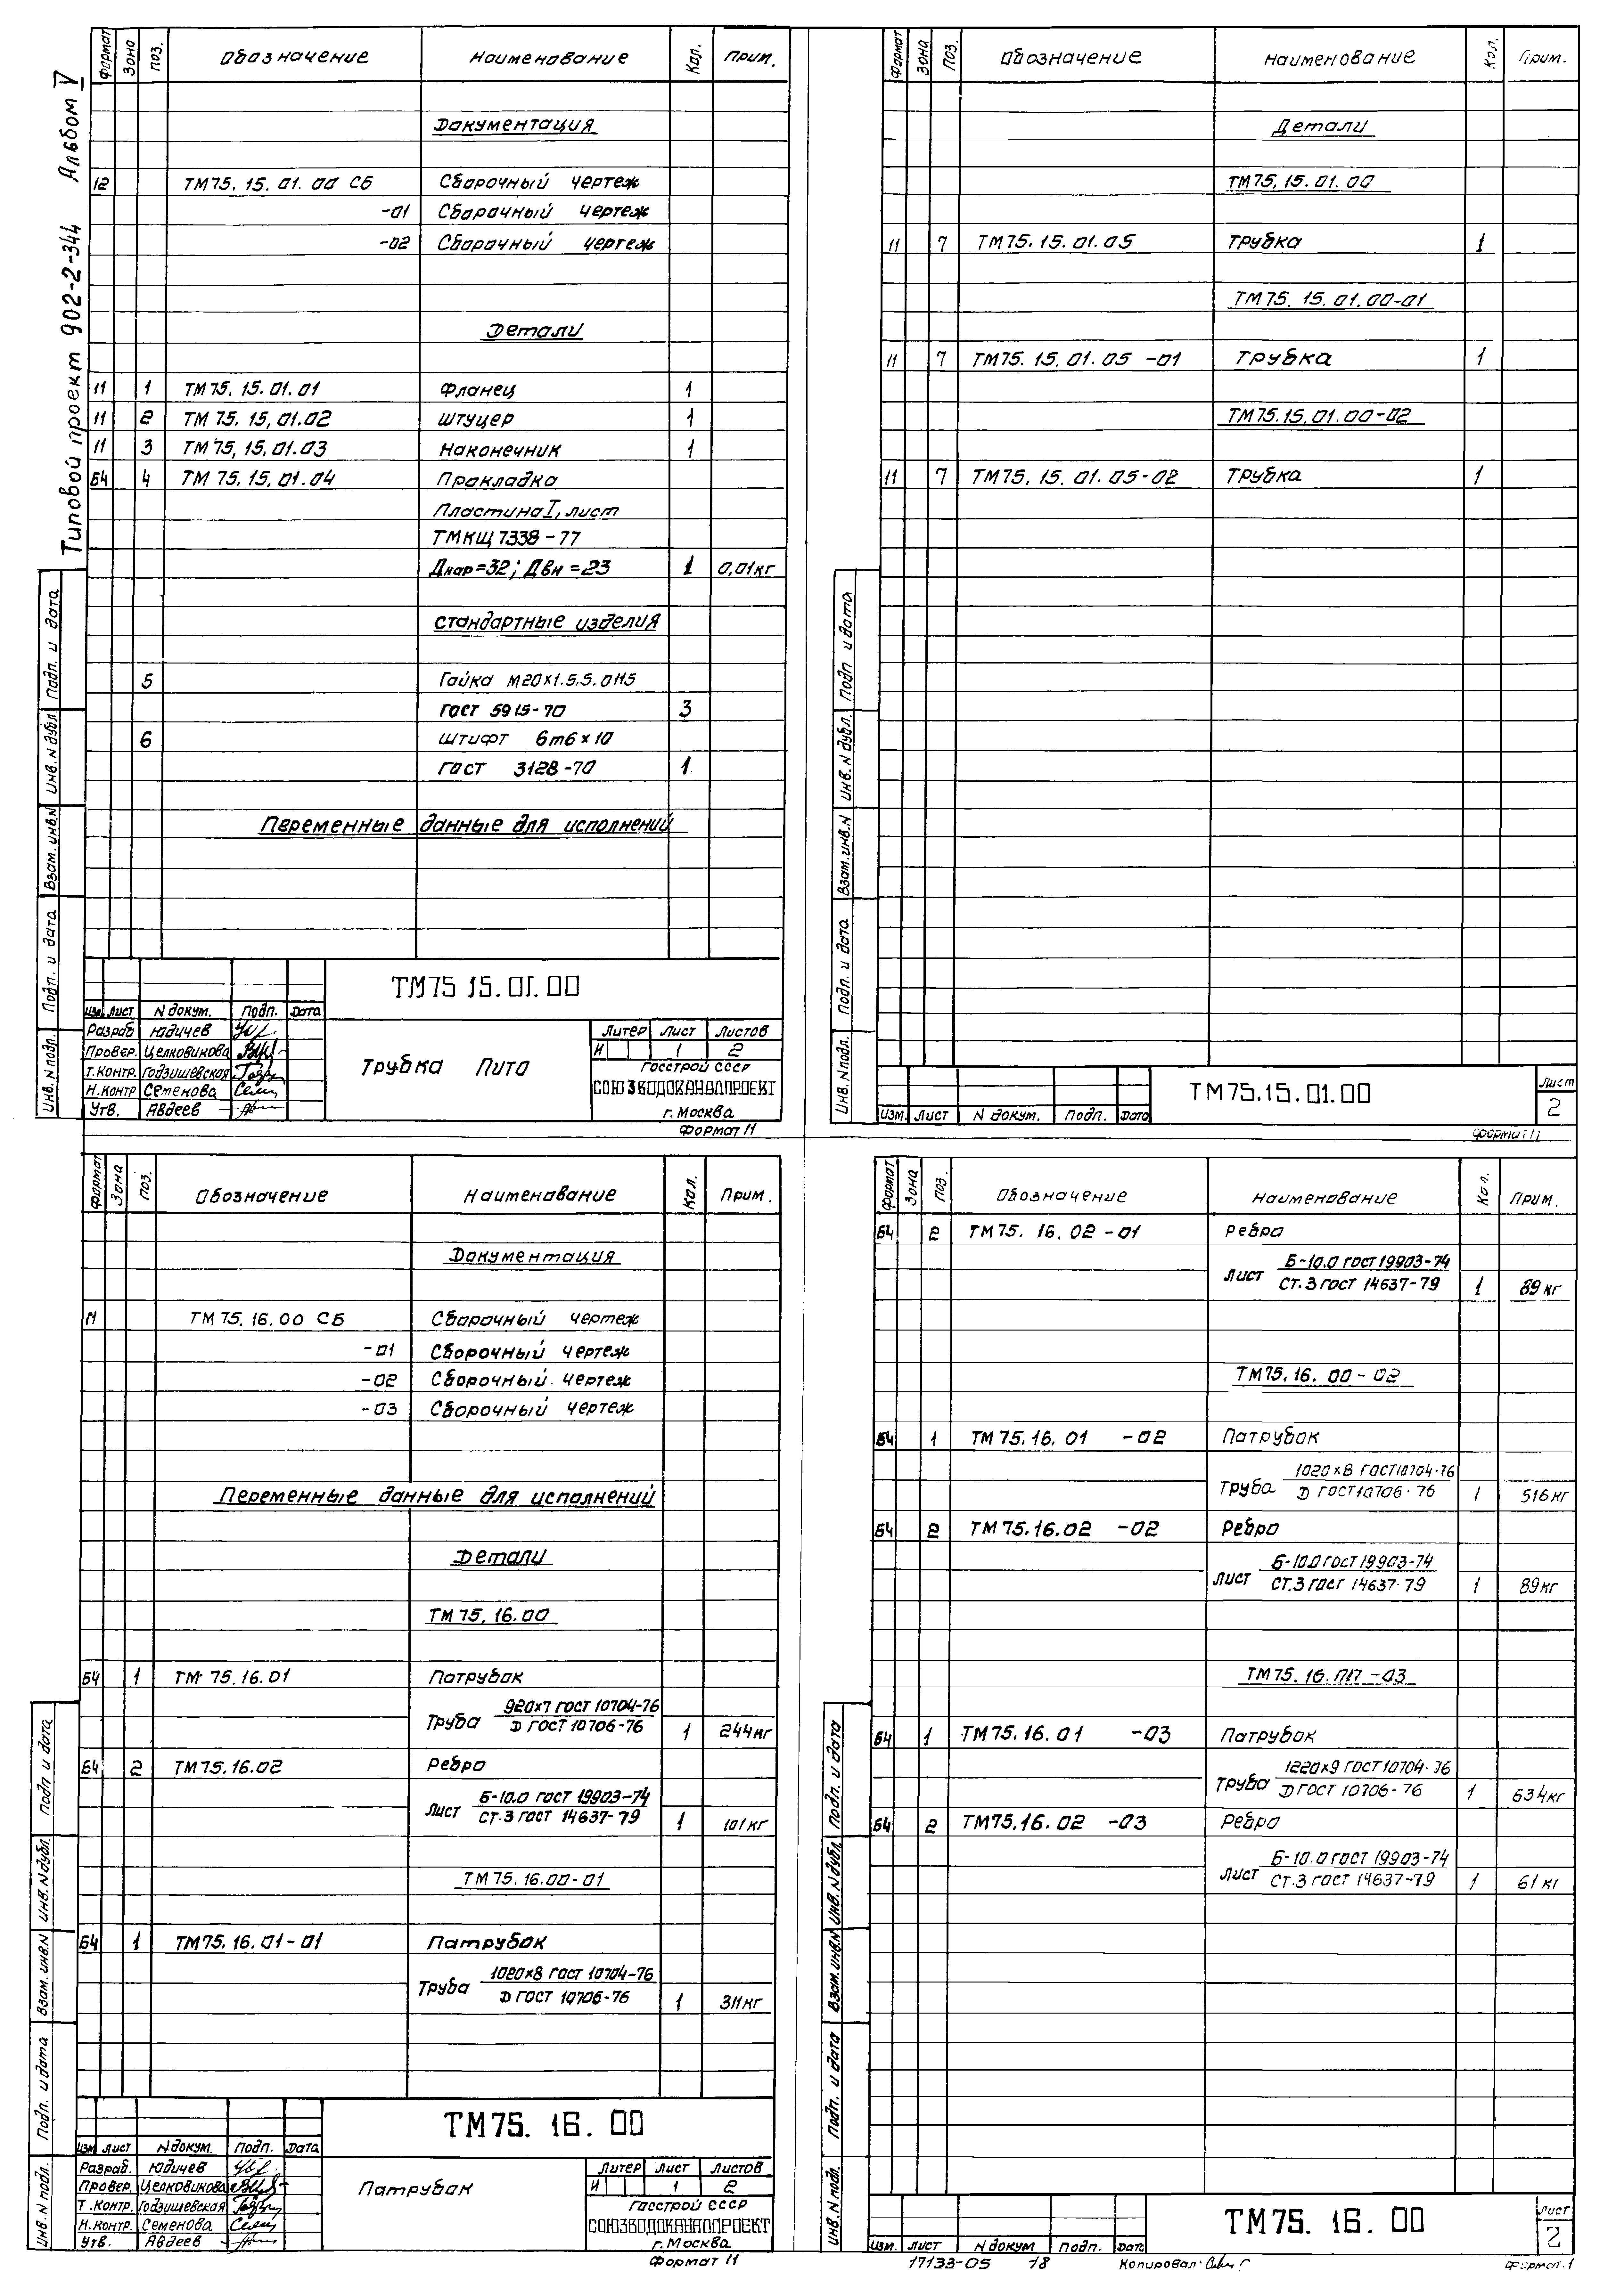 Типовой проект 902-2-344 Альбом V
Формат Зона Поз. Обозначение Наименование Кол. Прим.
Документация
12 ТМ75.15.01.00 СБ Сборочный чертеж
-01 Сборочный чертеж
-02 Сборочный чертеж
Детали
11 1 ТМ75.15.01.01 Фланец 1
11 2 ТМ75.15.01.02 Штуцер 1
11 3 ТМ75.15.01.03 Наконечник 1
Б4 4 ТМ75.15.01.04 Прокладка
Пластина I, лист
ТМКЩ 7338-77
Днар=32; Двн=23 1 0,01кг
Стандартные изделия
5 Гайка М20×1.5.5.0Н5
ГОСТ 5915-70 3
6 Штифт 6m6×10
ГОСТ 3128-70 1
Переменные данные для исполнений
Подп. и дата
Инв. N дубл.
Взам. инв. N
Подп. и дата
Инв. N подл.
ТМ75 15.01.00
Изм. Лист N докум. Подп. Дата
Разраб Юдичев
Провер. Целковикова
Т.контр. Годзишевская
Н.контр Семенова
Утв. Авдеев
Трубка Пито
Литер Лист Листов
И 1 2
Госстрой СССР
СОЮЗВОДОКАНАЛПРОЕКТ
г. Москва
Формат 11
Формат Зона Поз. Обозначение Наименование Кол. Прим.
Детали
ТМ75.15.01.00
11 7 ТМ75.15.01.05 Трубка 1
ТМ75.15.01.00-01
11 7 ТМ75.15.01.05 -01 Трубка 1
ТМ75.15.01.00-02
11 7 ТМ75.15.01.05-02 Трубка 1
Подп и дата
Инв. N дубл.
Взам. инв. N
Подп. и дата
Инв. N подл.
Изм. Лист N докум. Подп. Дата
ТМ75.15.01.00
Лист
2
Формат 11
Формат Зона Поз. Обозначение Наименование Кол. Прим.
Документация
11 ТМ75.16.00 СБ Сборочный чертеж
-01 Сборочный чертеж
-02 Сборочный чертеж
-03 Сборочный чертеж
Переменные данные для исполнений
Детали
ТМ75.16.00
Б4 1 ТМ 75.16.01 Патрубок
920×7 ГОСТ 10704-76
Труба Д ГОСТ 10706-76 1 244кг
Б4 2 ТМ75.16.02 Ребро
Б-10.0 ГОСТ 19903-74
Лист Ст.3 ГОСТ 14637-79 1 101кг
ТМ75.16.00-01
Б4 1 ТМ75.16.01-01 Патрубок
1020×8 ГОСТ 10704-76
Труба Д ГОСТ 10706-76 1 311кг
Подп и дата
Инв. N дубл.
Взам. инв. N
Подп. и дата
Инв. N подл.
ТМ75.16.00
Изм Лист N докум. Подп. Дата
Разраб. Юдичев
Провер. Целковикова
Т.контр. Годзишевская
Н.контр. Семенова
Утв. Авдеев
Патрубок
Литер Лист Листов
И 1 2
Госстрой СССР
СОЮЗВОДОКАНАЛПРОЕКТ
г. Москва
Формат 11
Формат Зона Поз. Обозначение Наименование Кол. Прим.
Б4 2 ТМ75.16.02-01 Ребро
Б-10.0 ГОСТ 19903-74
Лист Ст.3 ГОСТ 14637-79 1 89кг
ТМ75.16.00-02
Б4 1 ТМ75.16.01 -02 Патрубок
1020×8 ГОСТ 10704-76
Труба Д ГОСТ 10706-76 1 516кг
Б4 2 ТМ75.16.02 -02 Ребро
Б-10.0 ГОСТ 19903-74
Лист Ст.3 ГОСТ 14637-79 1 89кг
ТМ75.16.00-03
Б4 1 ТМ75.16.01 -03 Патрубок
1220×9 ГОСТ 10704-76
Труба Д ГОСТ 10706-76 1 634кг
Б4 2 ТМ75.16.02 -03 Ребро
Б-10.0 ГОСТ 19903-74
Лист Ст.3 ГОСТ 14637-79 1 61кг
Подп. и дата
Инв. N дубл.
Взам. инв. N
Подп. и дата
Инв. N подл.
Изм. Лист N докум Подп. Дата
ТМ75.16.00
Лист
2
17133-05 18 Копировал:
Формат 1